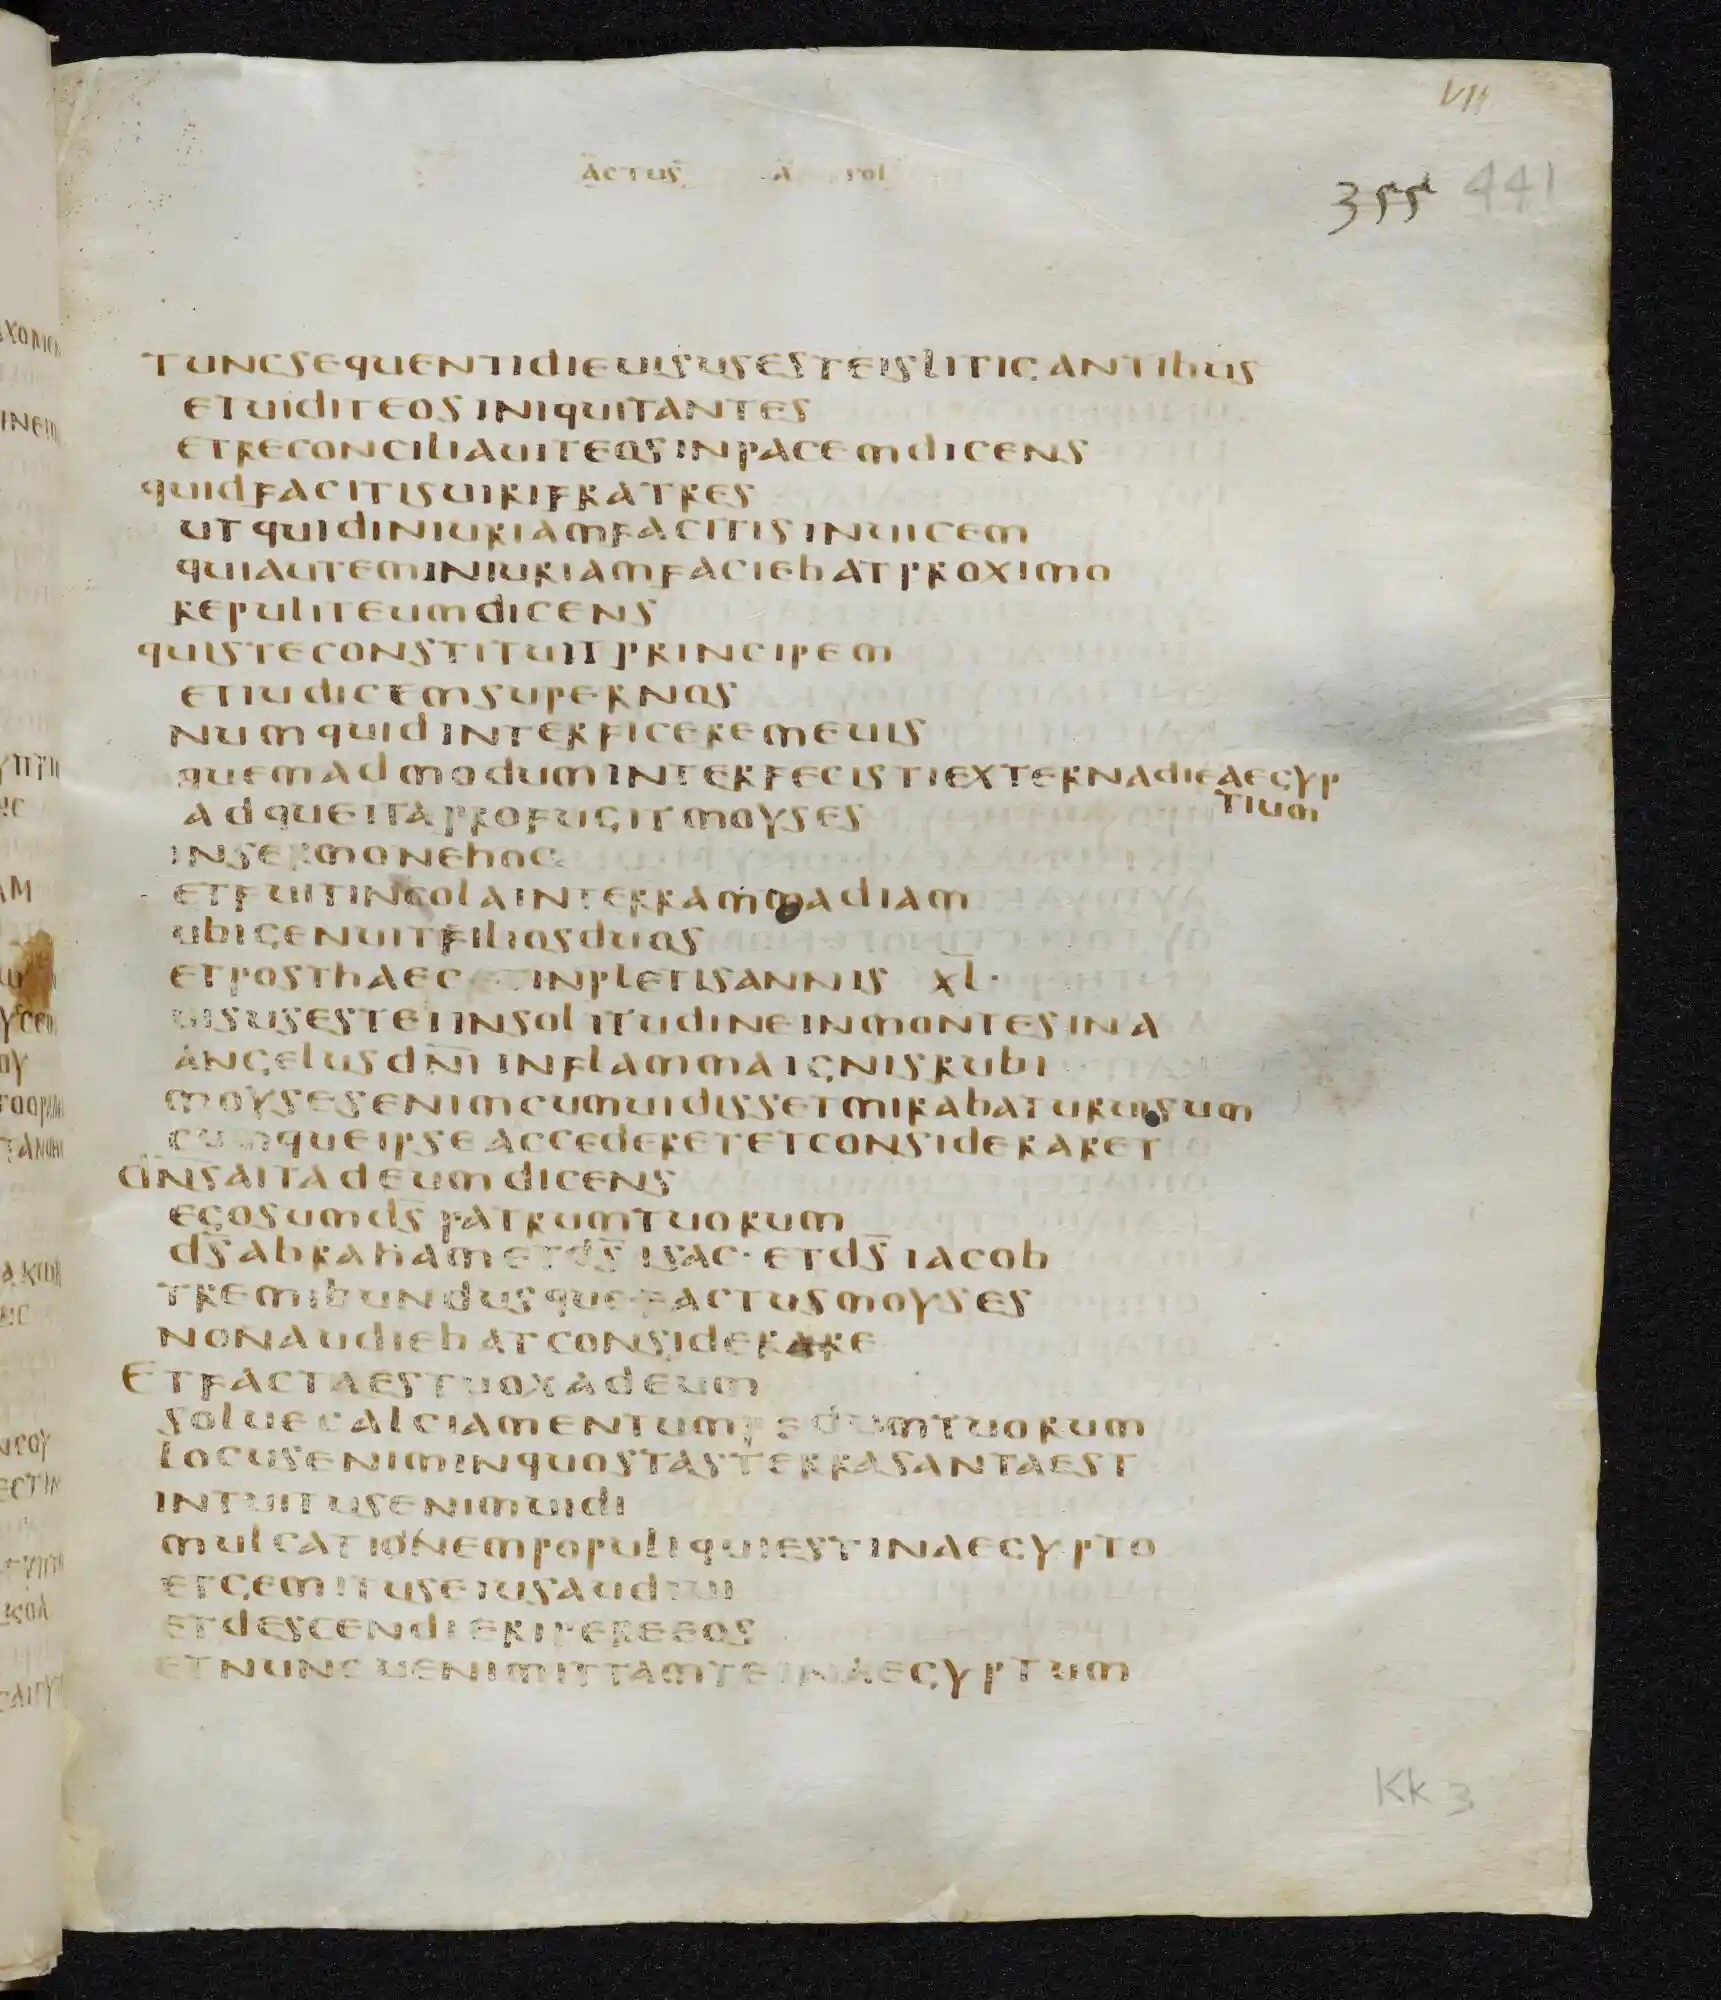 VII
ACTUS APOSTOL
355 441
TUNCSEQUENTIDIEUISUSESTEISLITIGANTIBUS
ETUIDITEOSINIQUITANTES
ETRECONCILIAUITEOSINPACEMDICENS
QUIDFACITISUIRIFRATRES
UTQUIDINIURIAMFACITISINUICEM
QUIAUTEMINIURIAMFACIEBATPROXIMO
REPULITEUMDICENS
QUISTECONSTITUITPRINCIPEM
ETIUDICEMSUPERNOS
NUMQUIDINTERFICEREMEUIS
QUEMADMODUMINTERFECISTIEXTERNADIEAEGYP
TIUM
ADQUEITAPROFUGITMOYSES
INSERMONEHOC
ETFUITINCOLAINTERRAMMADIAM
UBIGENUITFILIOSDUOS
ETPOSTHAEC INPLETISANNIS XL·
UISUSESTEIINSOLITUDINEINMONTESINA
ANGELUSDN̄I INFLAMMAIGNISRUBI
MOYSESENIMCUMUIDISSETMIRABATURUISUM
CUMQUEIPSEACCEDERETETCONSIDERARET
DN̄SAITADEUMDICENS
EGOSUMDS̄ PATRUMTUORUM
DS̄ABRAHAMETDS̄ ISAC·ETDS̄ IACOB
TREMIBUNDUSQUEFACTUSMOYSES
NONAUDIEBATCONSIDERARE
ETFACTAESTUOXADEUM
SOLUECALCIAMENTUMPEDUMTUORUM
LOCUSENIMINQUOSTASTERRASANTAEST
INTUITUSENIMUIDI
MULCATIONEMPOPULIQUIESTINAEGYPTO
ETGEMITUSEIUSAUDIUI
ETDESCENDIERIPEREEOS
ETNUNCUENIMITTAMTEINAEGYPTUM
Kk 3